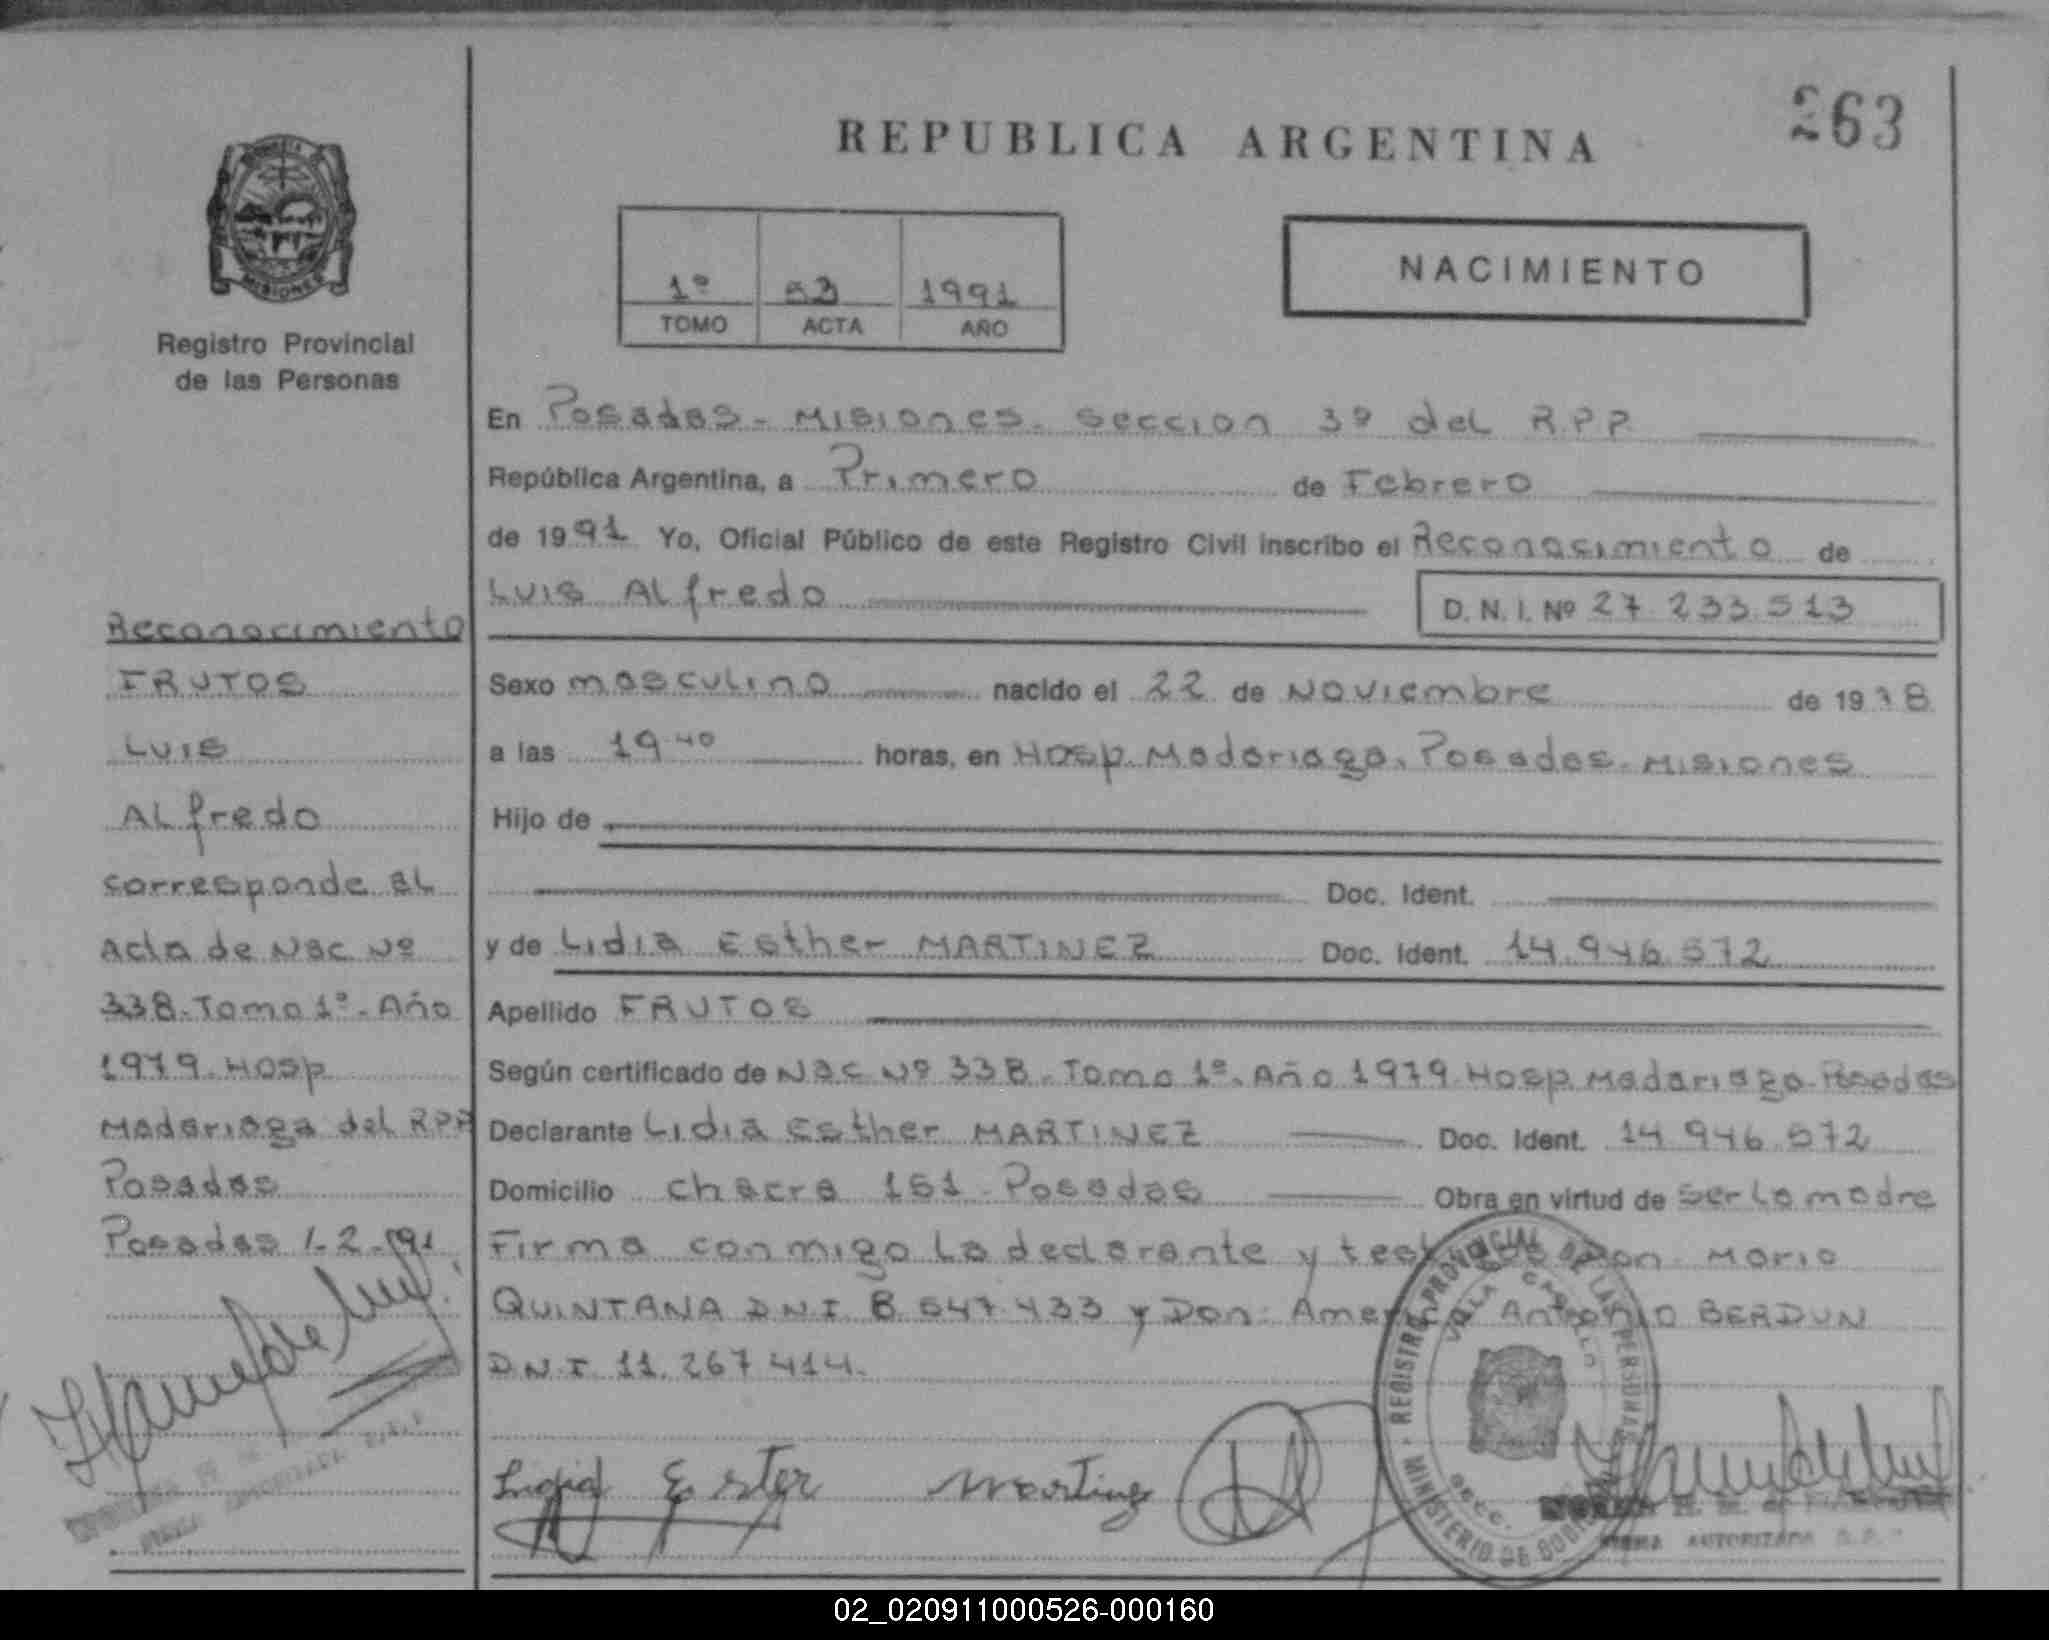 263
REPUBLICA ARGENTINA
NACIMIENTO
1º 53 1991
TOMO ACTA AÑO
MISIONES
Registro Provincial
de las Personas
En Posadas - Misiones. Seccion 3º del R.P.P
República Argentina, a Primero de Febrero
de 1991 Yo, Oficial Público de este Registro Civil inscribo el Reconocimiento de
Luis Alfredo D. N. I. Nº 27.233.513
Sexo masculino nacido el 22 de Noviembre de 1978
a las 19.40 horas, en Hosp. Madariaga. Posadas. Misiones
Hijo de
Doc. Ident.
y de Lidia Esther MARTINEZ Doc. Ident. 14.946.572
Apellido FRUTOS
Según certificado de Nac Nº 338. Tomo 1º. Año 1979. Hosp Madariaga. Posadas
Declarante Lidia Esther MARTINEZ Doc. Ident. 14 946.572
Domicilio chacra 151 - Posadas Obra en virtud de ser la madre
Firma conmigo la declarante y testigos Don Mario
QUINTANA D.N.I 8.547.433 y Don: Americo Antonio BERDUN
D.N.I 11.267 414.
Reconocimiento
FRUTOS
Luis
Alfredo
corresponde al
Acta de Nac Nº
338. Tomo 1º. Año
1979. Hosp
Madariaga del RPP
Posadas
Posadas 1-2-91
Lidia Ester Martinez
REGISTRO PROVINCIAL DE LAS PERSONAS
MINISTERIO DE
VILLA CABELLO
FIRMA AUTORIZADA
FIRMA AUTORIZADA
02_020911000526-000160